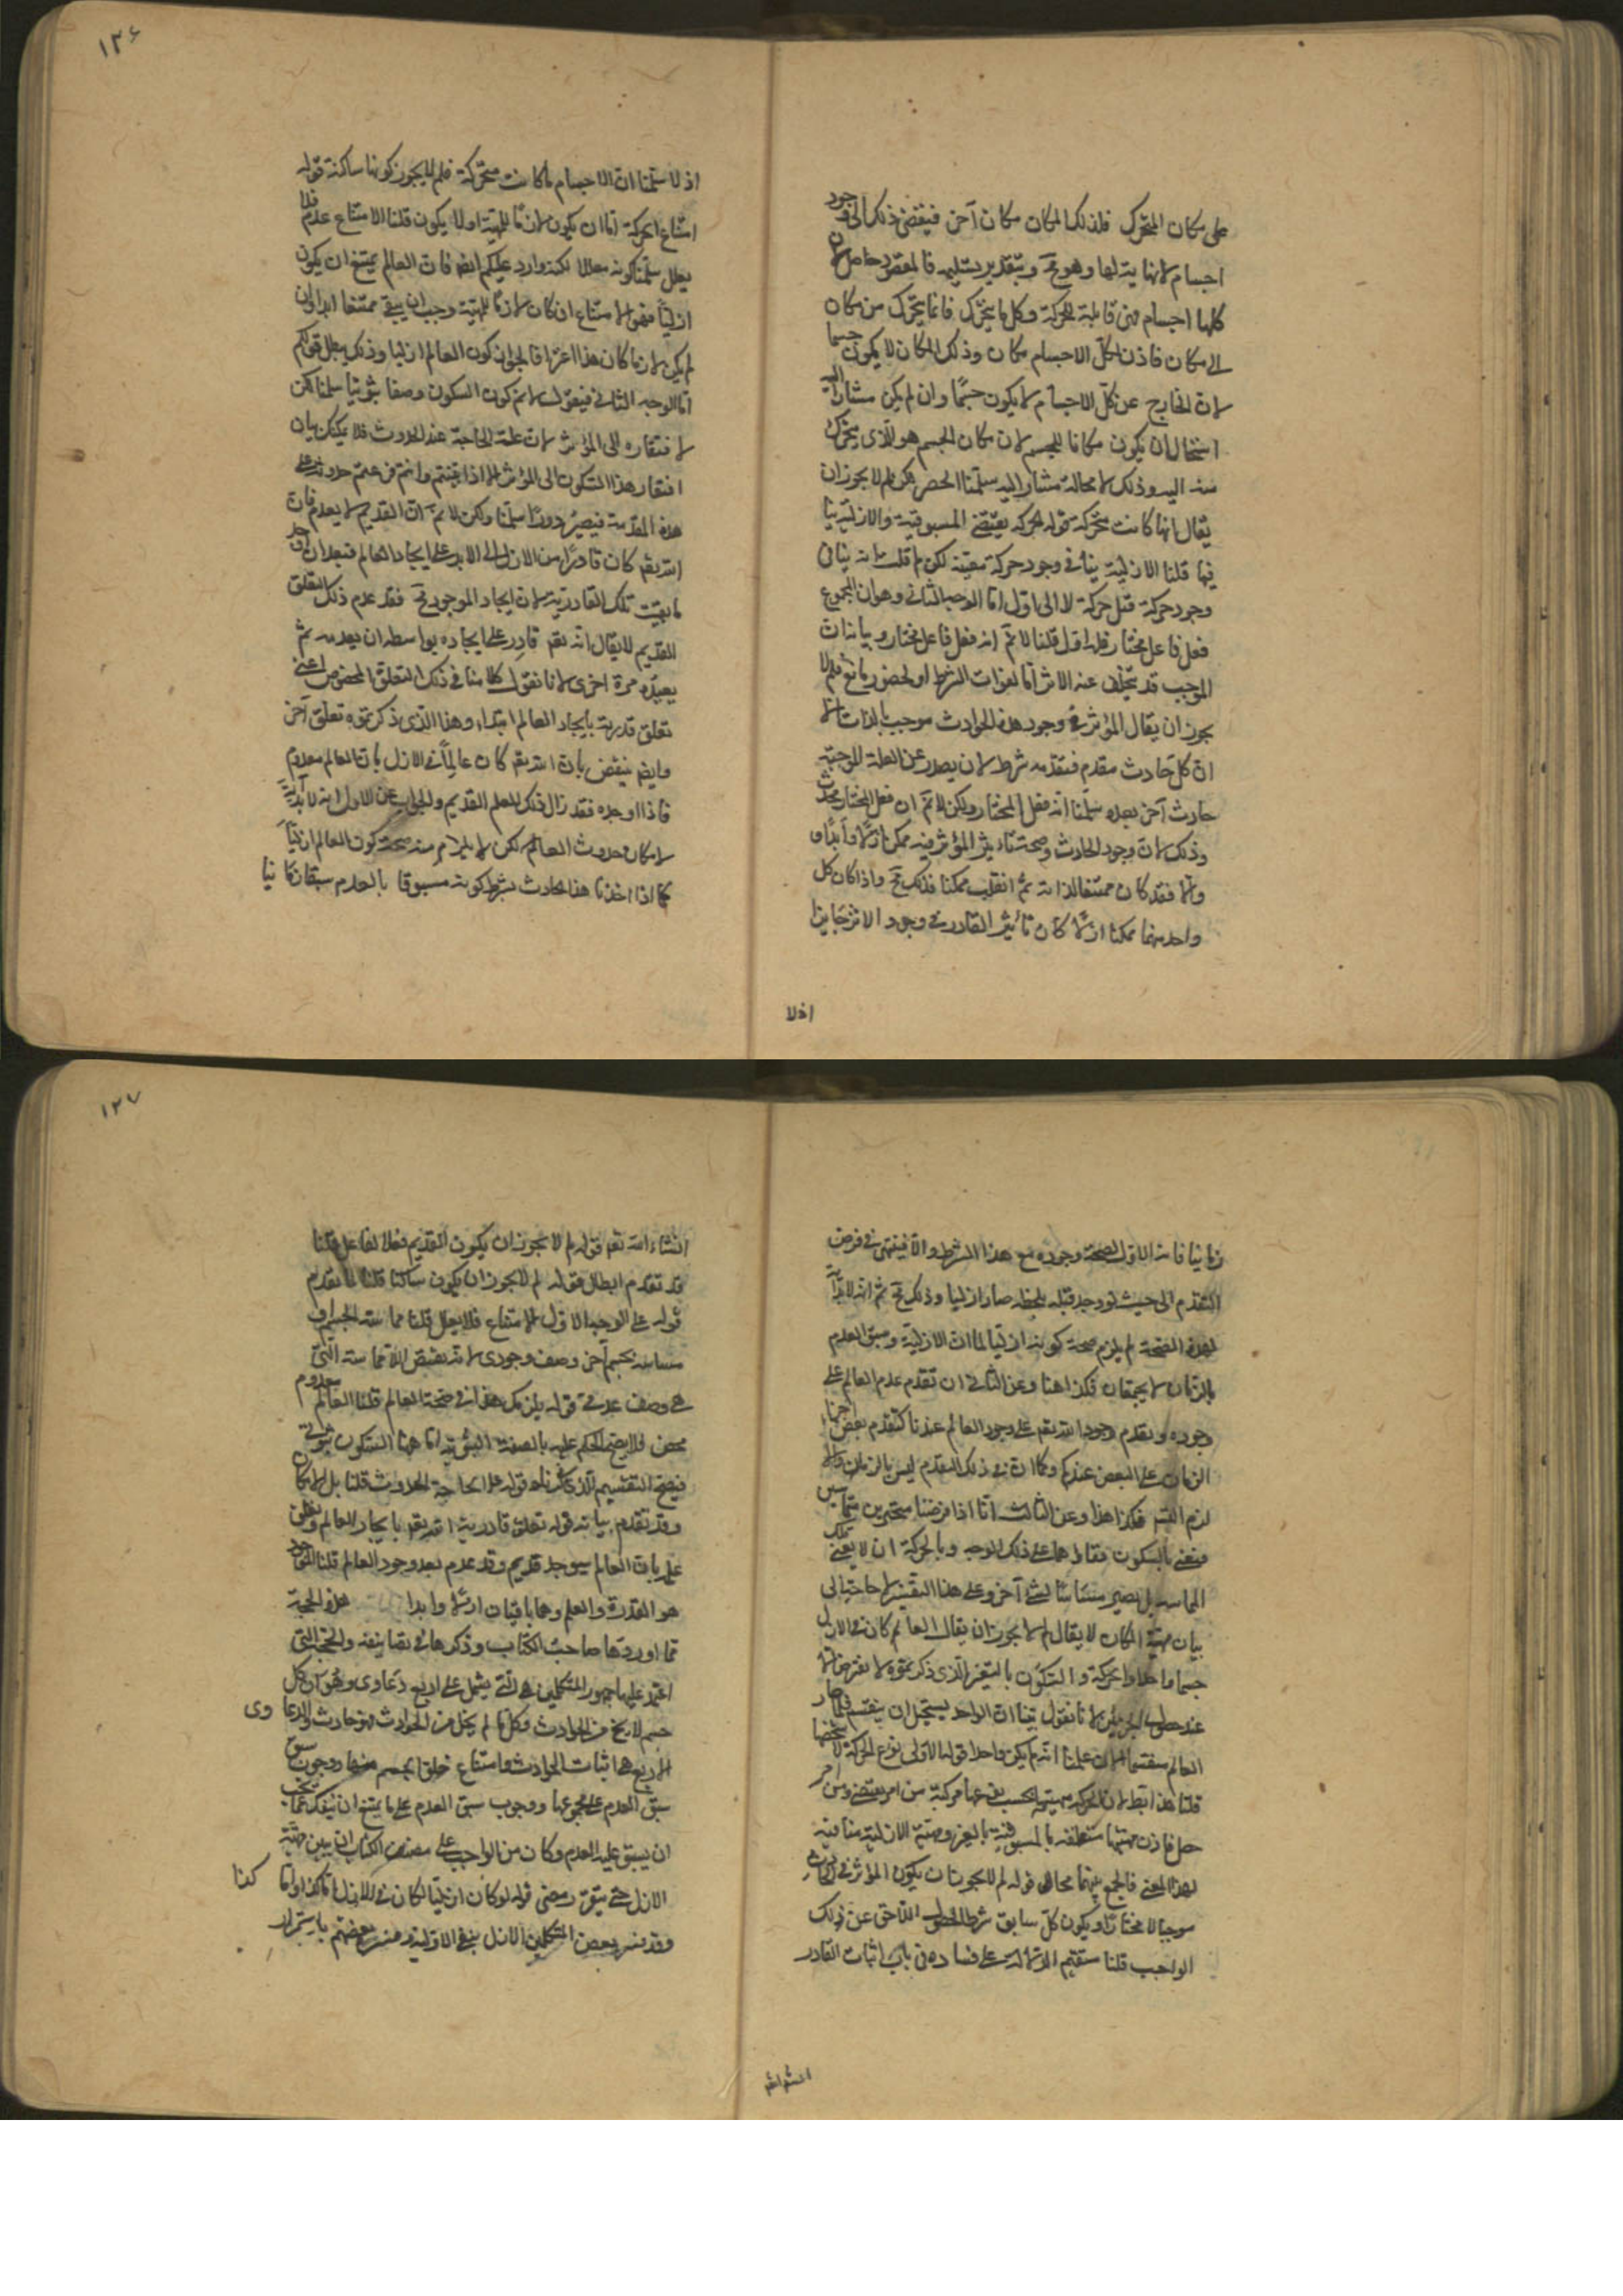 على مكان المتحرك فلذلك المكان مكان آخر فيفضى ذلك الى وجود
اجسام لانهاية لها وهو مح وبتقدير تسليمه فالمقصود حاصل لان
كلها اجسام فهى قابلة للحركة وكل ما يتحرك فانما يتحرك من مكان
الى مكان فاذن لكل الاجسام مكان وذلك المكان لا يكون جسما
لان الخارج عن كل الاجسام لا يكون جسما وان لم يكن مشارا اليه
استحال ان يكون مكانا للجسم لان مكان الجسم هو الذى يتحرك
منه اليه وذلك لا محالة مشار اليه سلمنا الحصر لكن لم لا يجوز ان
يقال انها كانت متحركة قوله الحركه يقتضى المسبوقية والازلية ينا
فيها قلنا الازلية ينافى وجود حركة معينة لكن لم قلت انه ينافى
وجود حركة قبل حركة لا الى اول اما الوجه الثانى وهو ان المجموع
فعل فاعل مختار فله اول قلنا لا نم انه فعل فاعل مختار وبيانه ان
الموجب قد يتخلف عنه الاثر اما لفوات الشرط او لحضور مانع فلم لا
يجوز ان يقال المؤثر فى وجود هذه الحوادث موجب بالذات الا
ان كل حادث مقدم فتقدمه شرط لان يصدر عن العلة الموجبة
حادث آخر بعده سلمنا انه فعل المختار ولكن لا نم ان فعل المختار محدث
وذلك لان وجود الحادث وصحة تاثير المؤثر فيه ممكن ازلا وابدا و
والا فقد كان ممتنعا لذاته ثم انقلب ممكنا فذلك مح واذا كان كل
واحد منهما ممكنا ازلا كان تأثير القادر فى وجود الاثر جايزا
اذلا
١٢٦
اذ لا سلمنا ان الاجسام ما كانت متحركة فلم لا يجوز كونها ساكنة قوله
امتناع الحركة اما ان يكون لازما للمهية او لا يكون قلنا الامتناع عدم فلا
يعلل سلمنا كونه معللا لكنه وارد عليكم ايضا فان العالم يمتنع ان يكون
ازليا فهو الامتناع ان كان لازما للمهية وجب ان يبقى ممتنعا ابدا وان
لم يكن لازما كان هذا اعترافا بجواز كون العالم ازليا وذلك يبطل قولكم
اما الوجه الثانى فيقول لا نم كون السكون وصفا ثبوتيا سلمنا لكن
لا فتقاره الى المؤثر لان علة الحاجة عند الحدوث فلا يمكنك بيان
افتقار هذا السكون الى المؤثر الا اذا بينتم حدوثه على
هذه المقدمة فيصير دورا سلمنا ولكن لا نم ان القديم لا يعدم فان
الله تعالى كان قادرا من الازل الى الابد على ايجاد العالم فبعد ان اوجد
ما بقيت تلك القادرية لان ايجاد الموجود مح فقد عدم ذلك التعلق
القديم لا يقال انه تعم قادر على ايجاده بواسطه ان يعدمه ثم
يعيده مرة اخرى لانا نقول كلامنا فى ذلك التعلق المخصوص اعنى
تعلق قدرية بايجاد العالم ابتداء وهذا الذى ذكرتموه تعلق آخر
وايضا ينقض بان الله تعم كان عالما فى الازل بان العالم معدوم
فاذا اوجده فقد زال ذلك العلم القديم والجواب عن الاول انه لا بداية
لامكان حدوث العالم لكن لا يلزم منه صحة كون العالم ازليا
كما اذا اخذنا هذا الحادث بشرط كونه مسبوقا بالعدم سبقا زما نيا
زمانيا فانه لا اول لصحة وجوده مع هذا الشرط والا فينتهى فى فرض
التقدم الى حيث لو وجد قبله بلحظة صار ازليا وذلك مح ثم انه لا بداية
لهذه الصحة لم يلزم صحة كونه ازليا لما ان الازلية وسبق العدم
بالزمان لا يجتمعان فكذا هنا وعن الثانى ان تقدم عدم العالم على
وجوده وتقدم وجود الله تعم على وجود العالم عندنا كتقدم بعض اجزاء
الزمان على البعض عندكم وكما ان ذلك التقدم ليس بالزمان والا
لزم التسم فكذا هذا وعن الثالث انا اذا فرضنا متحيزين متماسين
فنعنى بالسكون بقاءهما على ذلك الوجه وبالحركة ان لا يبقى تلك
المماسة بل يصير مماسا لشئ آخر وعلى هذا التفسير لا حاجة الى
بيان مهية المكان لا يقال لم لا يجوز ان يقال العالم كان فى الازل
جسما واحدا والحركة والسكون بالتفسير الذى ذكرتموه لا يعرضان الا
عند حصول الجسمين لانا نقول بينا ان الواحد يستحيل ان ينقسم فلما صار
العالم منقسما الان علمنا انه لم يكن واحدا قوله الاولى نوع الحركة لا شخصها
قلنا هذا بط لان الحركة مهيتها بحسب نوعها مركبة من امر يقتضى ومن امر
حصل فاذن مهيتها متعلقه بالمسبوقية بالغير ومهية الازلية منافية
لهذا المعنى فالجمع بينهما محال قوله لم لا يجوز ان يكون المؤثر فى الحوادث
موجبا لا مختارا ويكون كل سابق شرط لحصول اللاحق عن ذلك
الواجب قلنا سنقيم الدلالة على فساده فى باب اثبات القادر
انشاالله
١٢٧
انشاء الله تعم قوله لم لا يجوز ان يكون القديم فعلا لفاعل قلنا
قد تقدم ابطاله قوله لم لا يجوز ان يكون ساكنا قلنا لما تقدم
قوله على الوجه الاول الامتناع فلا يعلل قلنا مماسة الجسم او
مسامته لجسم آخر وصف وجودى لانه نقيض اللامماسة التى
هى وصف عدمى قوله يلزمك هذا فى صحة العالم قلنا العالم معدوم
محض فلا يصح الحكم عليه بالصفة الثبوتية اما هنا السكون ثبوتى
فيصح التقسيم الذى ذكرناه قوله علة الحاجة الحدوث قلنا بل الامكان
وقد تقدم بيانه قوله تعلق قادرية الله تعم بايجاد العالم وتعلق
علمه بان العالم سيوجد قديم وقد عدم بعد وجود العالم قلنا الموجود
هو القدرة والعلم وهما باقيان ازلا وابدا هذه الحجة
مما اوردها صاحب الكتاب وذكرها فى تصانيفه والحجة التى
اعتمد عليها جمهور المتكلمين هى التى يشتمل على اربع دعاوى وهو ان كل
جسم لا يخ من الحوادث وكل ما لم يخل من الحوادث فهو حادث والدعا وى
الاربع هى اثبات الحوادث وامتناع خلو الجسم منها ووجوب سبق
سبق العدم على مجموعها ووجوب سبق العدم على ما يمتنع ان ينفك عما يجب
ان يسبق عليه العدم وكان من الواجب على مصنف الكتاب ان يبين مهية
الازل حتى يتقرر معنى قوله لو كان ازليا لكان فى الازل اما كذا واما كذا
وقد فسر بعض المتكلمين الازل بنفى الاولية وفسره بعضهم باستمرار